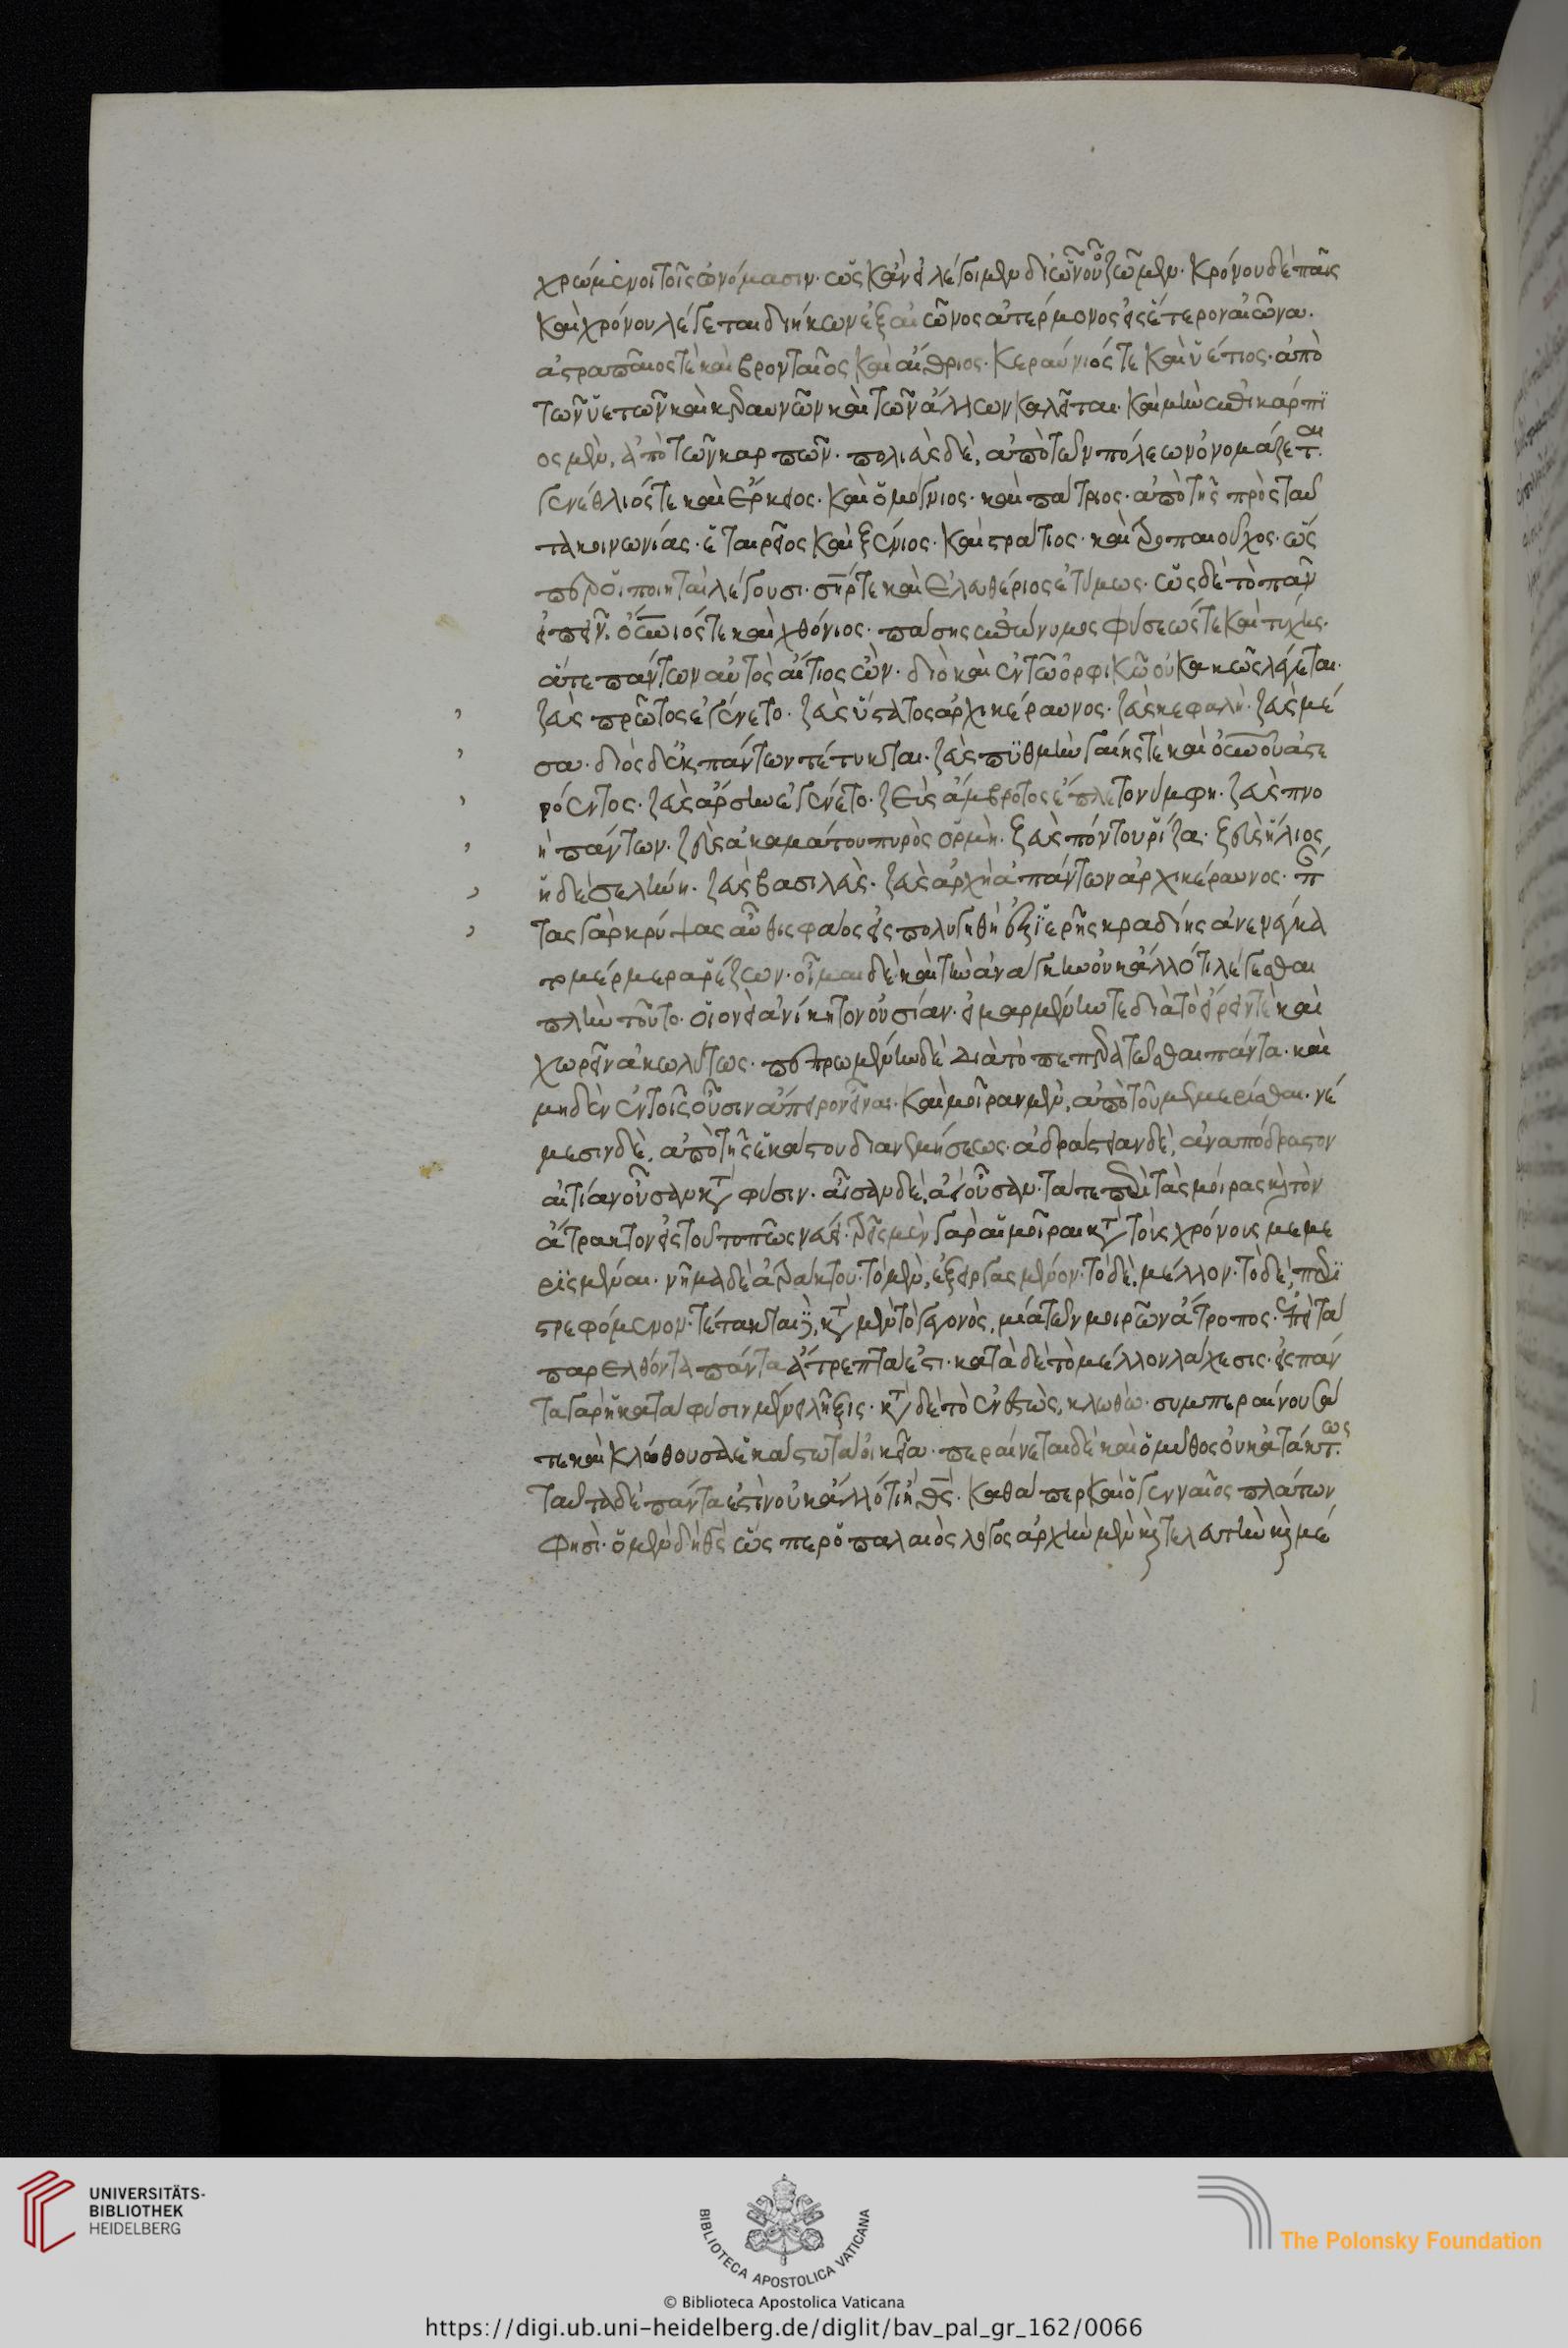 χρώμενοι τοῖς ὀνόμασιν· ὡς κἂν εἰ λέγοιμεν δι' ὃν οὗ ζῶμεν· Κρόνου δὲ παῖς
καὶ χρόνου λέγεται διήκων ἐξ αἰῶνος ἀτέρμονος εἰς ἕτερον αἰῶνα·
ἀστραπαῖός τε καὶ βρονταῖος καὶ αἴθριος· Κεραύνιός τε καὶ ὑέτιος· ἀπὸ
τῶν ὑετῶν καὶ κεραυνῶν καὶ τῶν ἄλλων καλεῖται· καὶ μὴν ἐπικάρπι
ος μὲν, ἀπὸ τῶν καρπῶν· πολιεὺς δὲ, ἀπὸ τῶν πόλεων ὀνομάζεται·
γενέθλιός τε καὶ ἕρκειος· καὶ ὁμόγνιος· καὶ πάτριος· ἀπὸ τῆς πρὸς ταῦ
τα κοινωνίας· ἑταιρεῖος καὶ ξένιος· καὶ στράτιος· καὶ τροπαιοῦχος· ὥς
περ οἱ ποιηταὶ λέγουσι· σωτήρ τε καὶ ἐλευθέριος ἐτύμως· ὡς δὲ τὸ πᾶν
εἰπεῖν, οὐράνιός τε καὶ χθόνιος· πάσης ἐπώνυμος φύσεώς τε καὶ τύχης·
ἅτε πάντων αὐτὸς αἴτιος ὤν· διὸ καὶ ἐν τῷ ὀρφικῷ οὐ κακῶς λέγεται·
ζεὺς πρῶτος ἐγένετο· ζεὺς ὕστατος ἀρχικέραυνος· ζεὺς κεφαλή· ζεὺς μέ
σσα· διὸς δ' ἐκ πάντων τέτυκται· ζεὺς πυθμὴν γαίης τε καὶ οὐρανοῦ ἀστε
ρόεντος· ζεὺς ἄρσην ἐγένετο· ζεὺς ἄμβροτος ἔπλετο νύμφη· ζεὺς πνο
ιὴ πάντων· ζεὺς ἀκαμάτου πυρὸς ὁρμή· ζεὺς πόντου ῥίζα· ζεὺς ἥλιος
ἠδὲ σελήνη· ζεὺς βασιλεὺς· ζεὺς ἀρχὴ ἁπάντων ἀρχικέραυνος· πάν
τας γὰρ κρύψας αὖθις φάος εἰς πολυγηθὴ ἐξ ἱερῆς κραδίης ἀνενέγκα
το μέρμερα ῥέζων· οἶμαι δὲ καὶ τὴν ἀνάγκην οὐκ ἄλλό τι λέγεσθαι
πλὴν τοῦτο· οἱονεὶ ἀνίκητον οὐσίαν· εἱμαρμένην τε διὰ τὸ εἴρειν τὲ καὶ
χωρεῖν ἀκωλύτως· πεπρωμένην δὲ διὰ τὸ πεπερατῶσθαι πάντα· καὶ
μηδὲν ἐν τοῖς οὖσιν ἄπειρον εἶναι· καὶ μοῖραν μὲν, ἀπὸ τοῦ μεμερίσθαι· νέ
μεσιν δὲ, ἀπὸ τῆς ἑκάστου διανεμήσεως· ἀδράστειαν δὲ, ἀναπόδραστον
αἰτίαν οὖσαν κατὰ φύσιν· αἶσαν δὲ, ἀεὶ οὖσαν· τά τε περὶ τὰς μοίρας καὶ τὸν
ἄτρακτον εἰς τοῦτό πως νεύει· τρεῖς μὲν γὰρ αἱ μοῖραι κατὰ τοὺς χρόνους μεμε
ρισμέναι· νῆμα δὲ ἀτράκτου· τὸ μὲν, ἐξειργασμένον· τὸ δὲ, μέλλον· τὸ δὲ, περι
στρεφόμενον· τέτακται δὲ, κατὰ μὲν τὸ γεγονὸς, μία τῶν μοιρῶν ἄτροπος· ἐπεὶ τὰ
παρελθόντα πάντα ἄτρεπτά ἐστι· κατὰ δὲ τὸ μέλλον λάχεσις· εἰς πάν
τα γὰρ ἡ κατὰ φύσιν μένει λῆξις· κατὰ δὲ τὸ ἐνεστὼς, κλωθὼ· συμπεραίνουσά
τε καὶ κλώθουσα ἑκάστῳ τὰ οἰκεῖα· περαίνεται δὲ καὶ ὁ μῦθος οὐκ ἀτάκτως
ταῦτα δὲ πάντα ἐστὶν οὐκ ἄλλό τι ἢ θεός· καθάπερ καὶ ὁ γενναῖος πλάτων
φησί· ὁ μὲν δὴ θεὸς ὥσπερ ὁ παλαιὸς λόγος ἀρχὴν μὲν καὶ τελευτὴν καὶ μέ
UNIVERSITÄTS-
BIBLIOTHEK
HEIDELBERG
BIBLIOTECA APOSTOLICA VATICANA
© Biblioteca Apostolica Vaticana
The Polonsky Foundation
https://digi.ub.uni-heidelberg.de/diglit/bav_pal_gr_162/0066